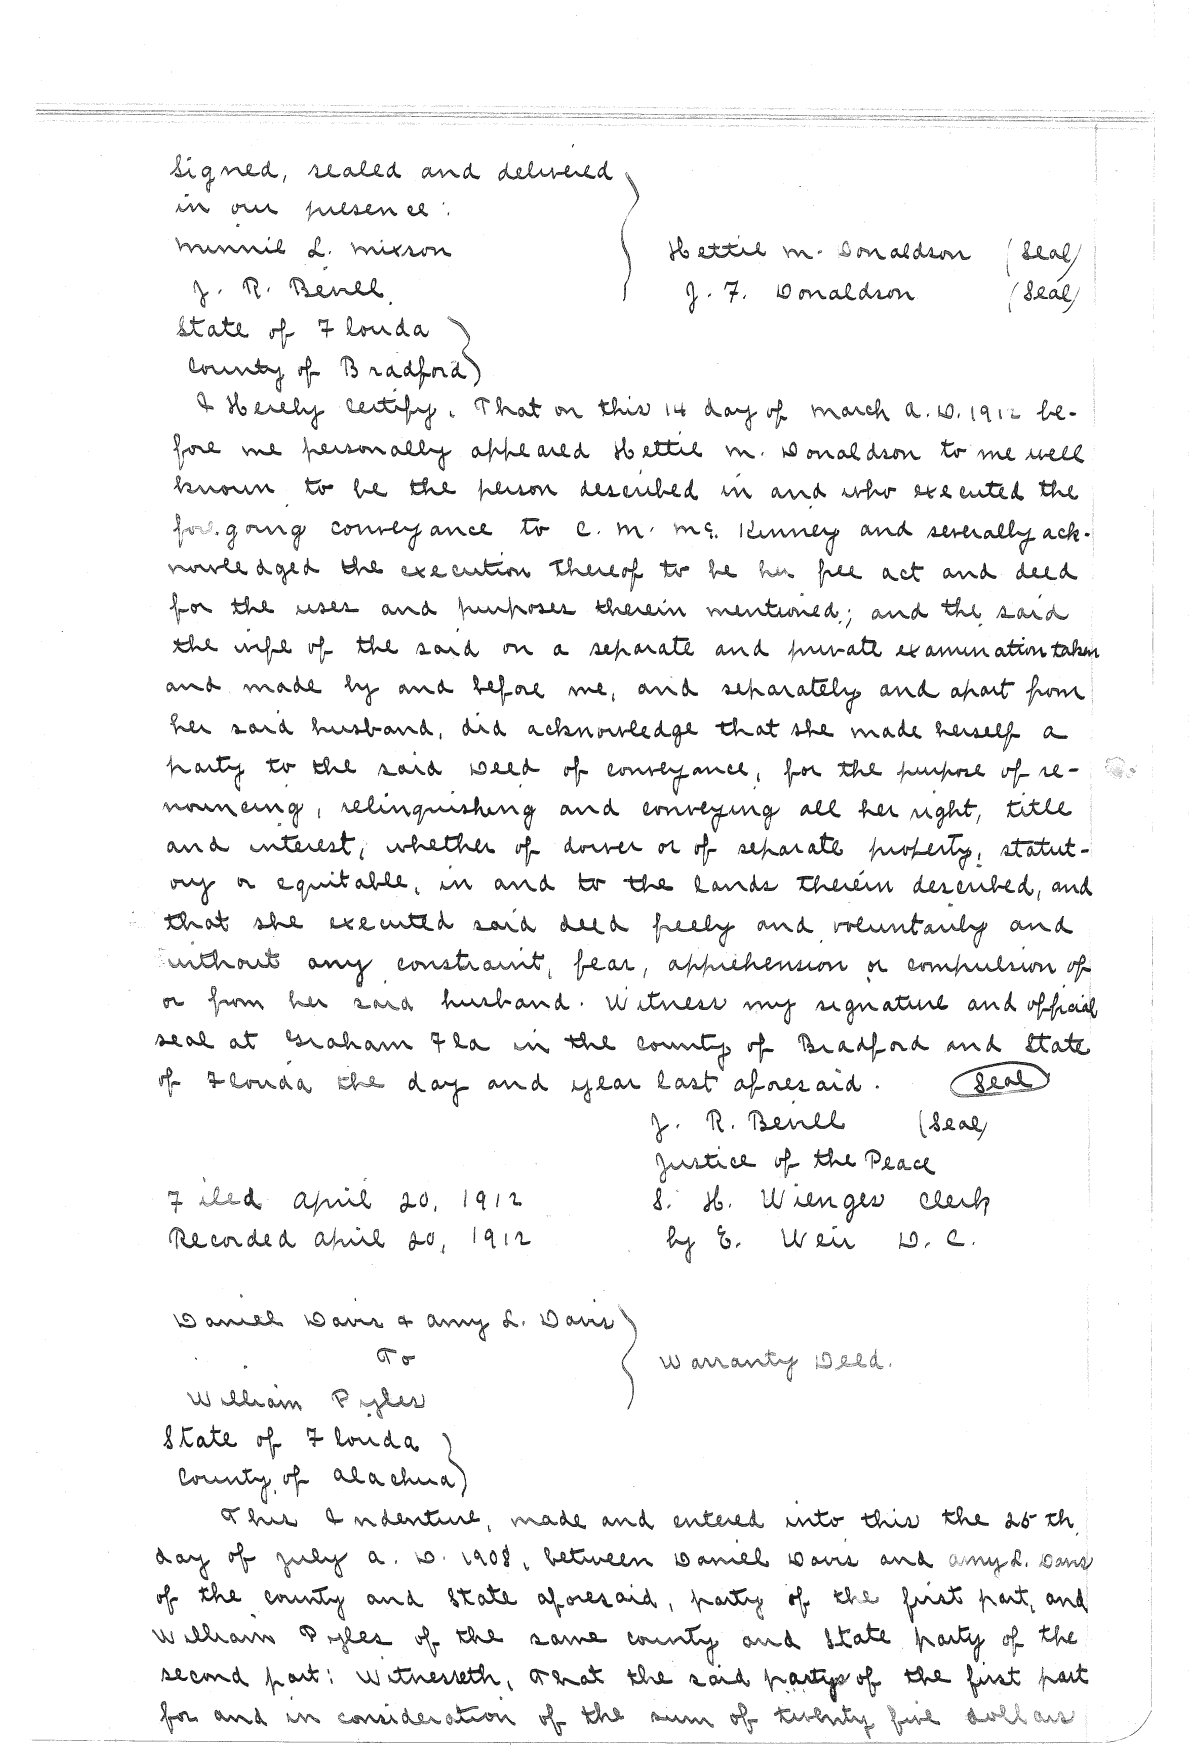 Signed, sealed and delivered
in our presence:
Minnie L. Mixson
Hettie M. Donaldson (Seal)
J. R. Bevill
J. F. Donaldson (Seal)
State of Florida
County of Bradford
I Hereby Certify, That on this 14 day of March A.D. 1912 be-
fore me personally appeared Hettie M. Donaldson to me well
known to be the person described in and who executed the
foregoing conveyance to C. M. Mc Kinney and severally ack-
nowledged the execution thereof to be her free act and deed
for the uses and purposes therein mentioned; and the said
the wife of the said on a separate and private examination taken
and made by and before me, and separately and apart from
her said husband, did acknowledge that she made herself a
party to the said Deed of conveyance, for the purpose of re-
nouncing, relinquishing and conveying all her right, title
and interest, whether of dower or of separate property, statut-
ory or equitable, in and to the lands therein described, and
that she executed said deed freely and voluntarily and
without any constraint, fear, apprehension or compulsion of
or from her said husband. Witness my signature and official
seal at Graham Fla in the county of Bradford and State
of Florida the day and year last aforesaid. Seal
J. R. Bevill (Seal)
Justice of the Peace
Filed April 20, 1912 S. H. Wienges Clerk
Recorded April 20, 1912 by E. Weir D. C.
Daniel Davis & Amy L. Davis
To
Warranty Deed.
William Pyles
State of Florida
County of Alachua
This Indenture, made and entered into this the 25th
day of July A. D. 1908, between Daniel Davis and Amy L. Davis
of the county and State aforesaid, party of the first part, and
William Pyles of the same county and State party of the
second part: Witnesseth, That the said partys of the first part
for and in consideration of the sum of twenty five dollars